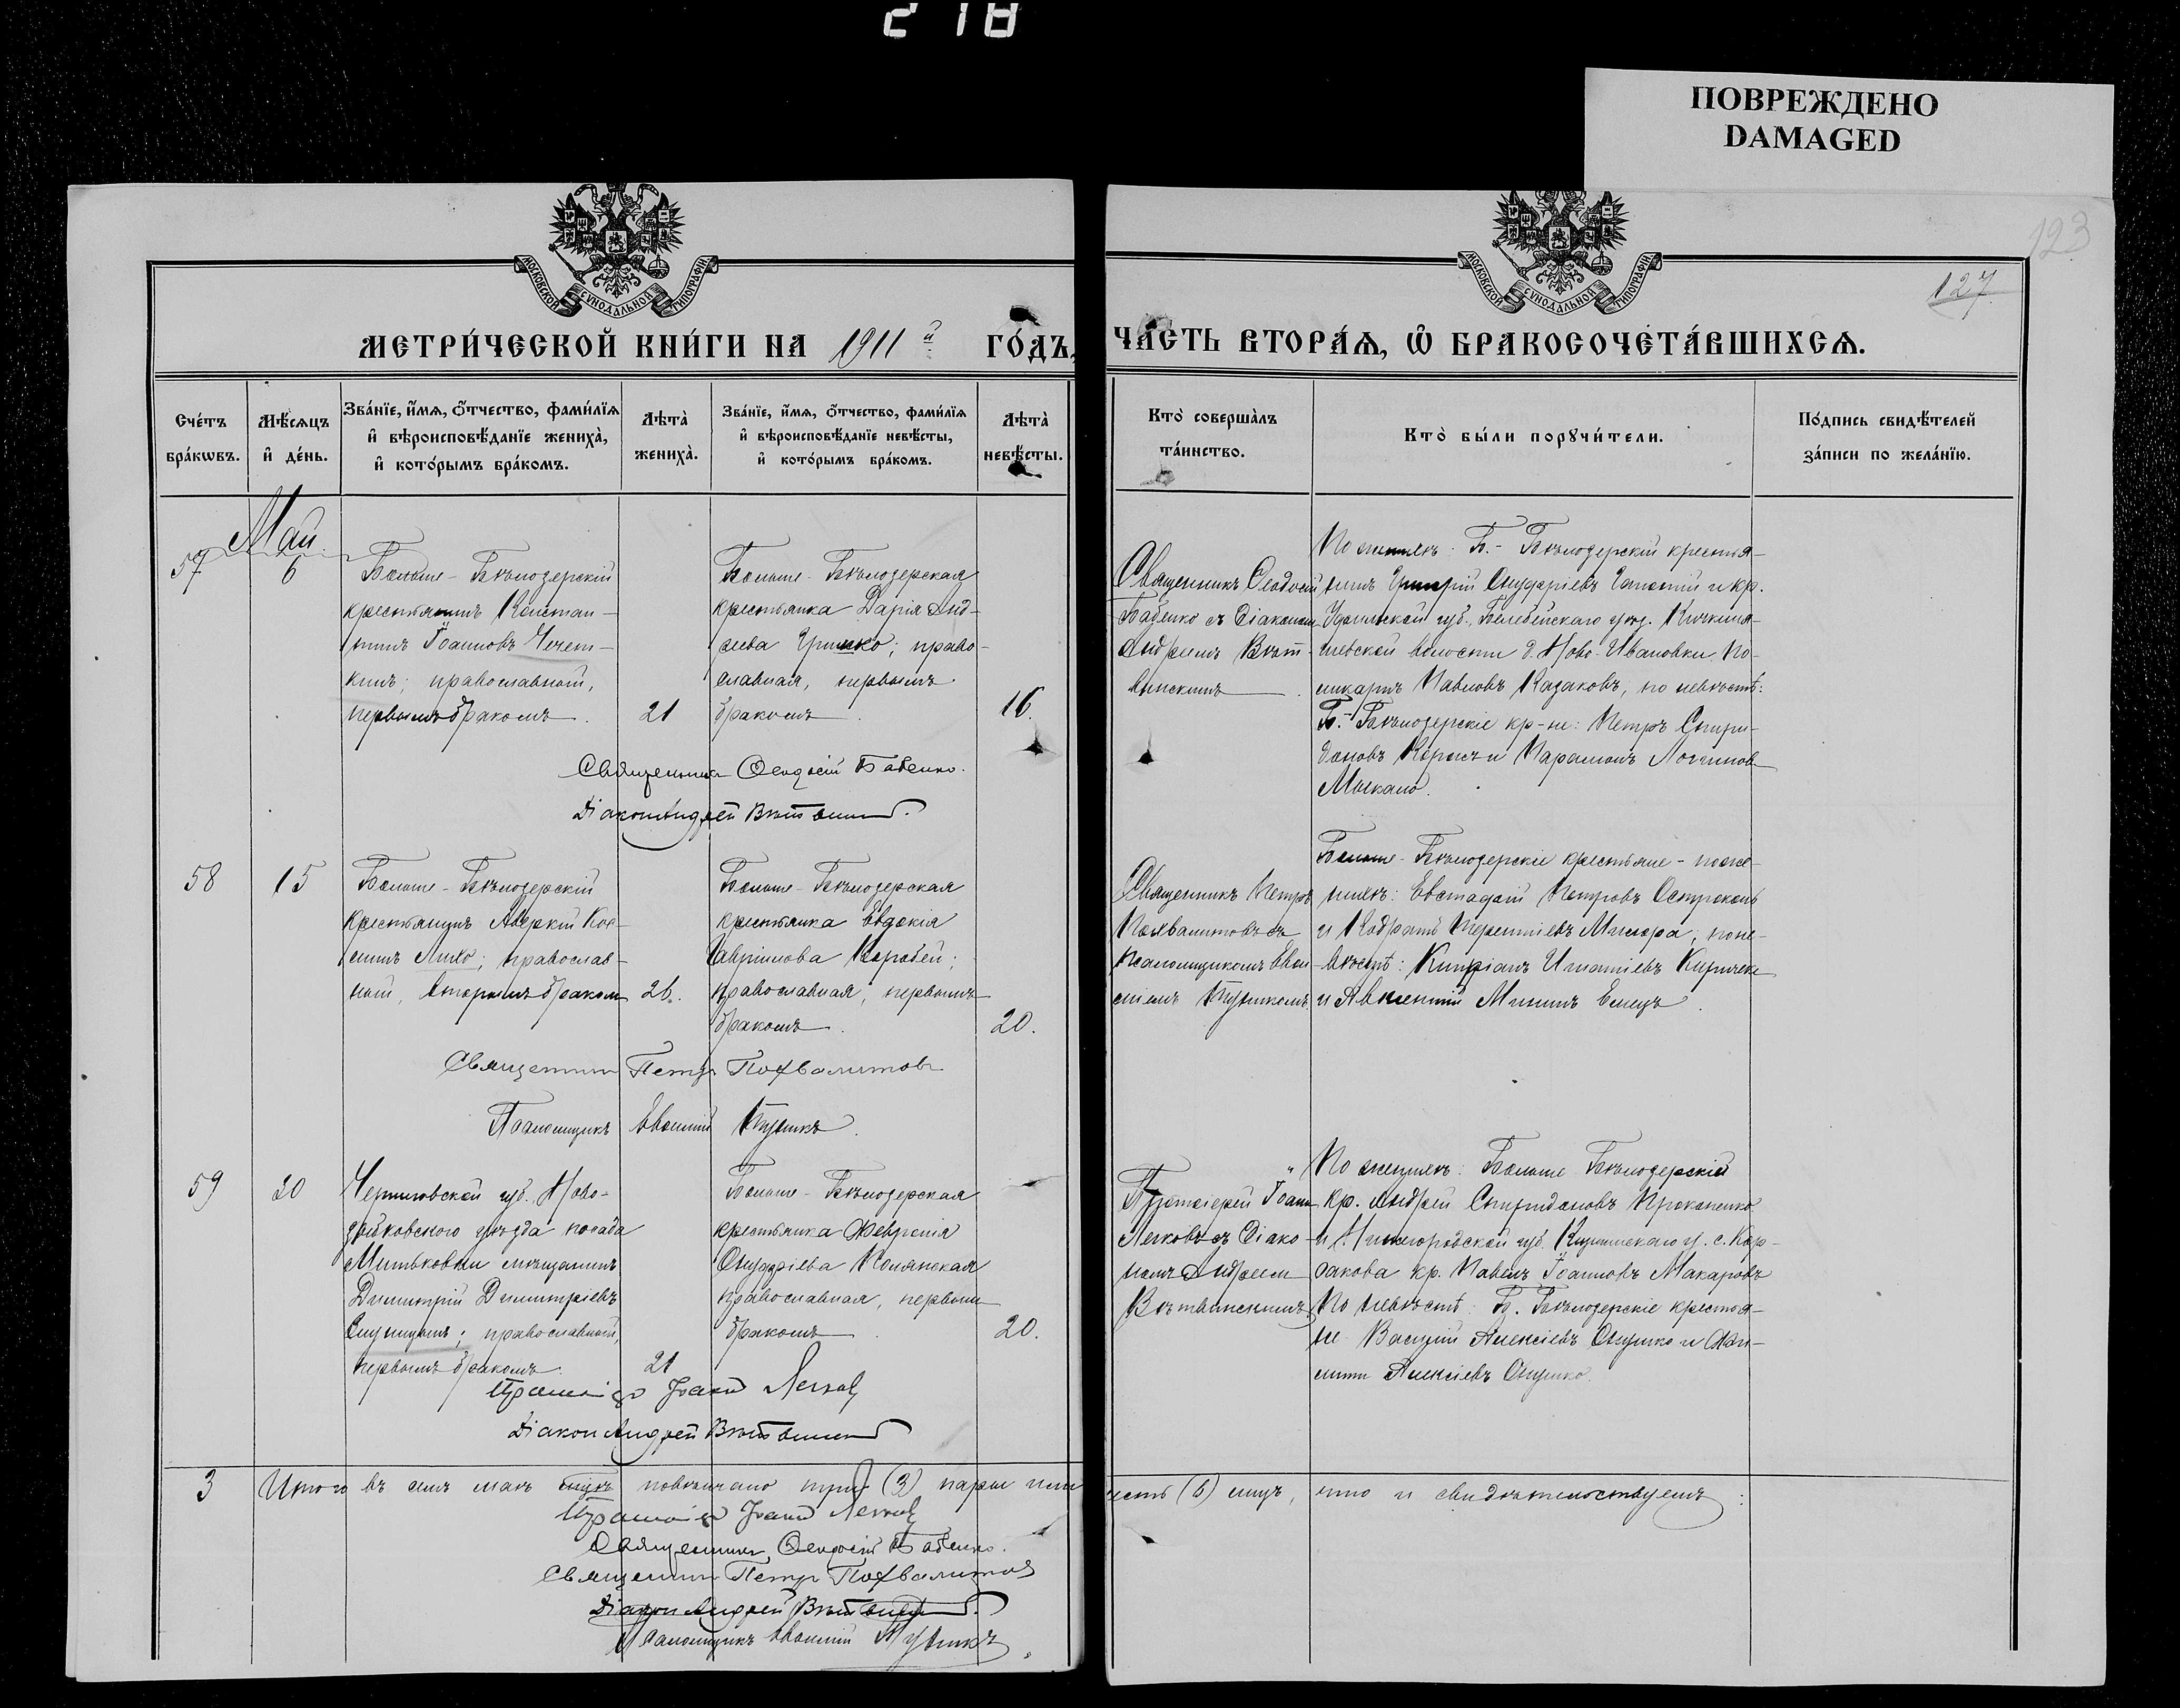 218
ПОВРЕЖДЕНО
DAMAGED
123
127
МОСКОВСКОЙ СУНОДАЛЬНОЙ ТИПОГРАФІИ
МОСКОВСКОЙ СУНОДАЛЬНОЙ ТИПОГРАФІИ
МЕТРИ́ЧЕСКОЙ КНИ́ГИ НА 1911й ГО́ДЪ,
ЧА́СТЬ ВТОРА́Я, Ѡ БРАКОСОЧЕТА́ВШИХСЯ.
Сче́тъ
бра́кѡвъ.
Мѣ́сяцъ
и҆ де́нь.
Зва́нїе, и҆́мя, ѻ҆́тчество, фами́лїя
и҆ вѣроисповѣ́данїе жениха̀,
и҆ кото́рымъ бра́комъ.
Лѣта̀
жениха̀.
Зва́нїе, и҆́мя, ѻ҆́тчество, фами́лїя
и҆ вѣроисповѣ́данїе невѣ́сты,
и҆ кото́рымъ бра́комъ.
Лѣта̀
невѣ́сты.
Кто̀ соверша̀лъ
та́инство.
Кто̀ бы́ли порꙋчи́тели.
По́дпись свидѣ́телей
за́писи по жела́нїю.
Май
57
6
Больше-Бѣлозерскій
крестьянинъ Констан-
тинъ Іоанновъ Чечет-
кинъ; православный,
первымъ бракомъ.
21
Больше-Бѣлозерская
крестьянка Дарія Анд-
реева Гришко; право-
славная, первымъ
бракомъ.
16.
Священникъ Ѳеодосій
Бабенко съ Діакономъ
Андреемъ Вѣт-
винскимъ.
По женихѣ: Б.-Бѣлозерскій крестья-
нинъ Григорій Онуфріевъ и кр.
Уфимской губ., Белебейскаго уѣзд.
волости д. Ново-Ивановки По-
ликарпъ Павловъ Казаковъ, по невѣстѣ:
Б.-Бѣлозерскіе кр-не: Петръ Спири-
доновъ и Парамонъ Логиновъ
Священникъ Ѳеодосій Бабенко.
Діаконъ Андрей Вѣтвинскій.
58
15
Больше-Бѣлозерскій
крестьянинъ Аверкій Кос-
минъ Лихо; православ-
ный, вторымъ бракомъ
26.
Больше-Бѣлозерская
крестьянка Евдокія
Гавріилова Коробей;
православная, первымъ
бракомъ.
20.
Священникъ Петръ
Похвалитовъ съ
Псаломщикомъ Евѳи-
міемъ
Больше-Бѣлозерскіе крестьяне-по же-
нихѣ: Евстафій Петровъ
и Кодратъ Терентіевъ Мисюра, по не-
вѣстѣ: Кипріанъ Игнатіевъ Киричекъ
и Авксентій Мининъ Емецъ.
Священникъ Петръ Похвалитовъ
Псаломщикъ Евѳимій
59
20
Черниговской губ. Ново-
зыбковскаго уѣзда посада
Митьковки мѣщанинъ
Димитрій Димитріевъ
православный,
первымъ бракомъ.
21
Больше-Бѣлозерская
крестьянка Февронія
Онуфріева Полянская
православная, первымъ
бракомъ.
20.
Протоіерей Іоаннъ
Легковъ съ Діако-
номъ Андреемъ
Вѣтвинскимъ
По женихѣ: Больше Бѣлозерскій
кр. Андрей Спиридоновъ Прокопенко
и Нижегородской губ. у. с.
кр. Павелъ Іоанновъ Макаровъ
По невѣстѣ: Б. Бѣлозерскіе крестья-
не Василій Алексіевъ Онушко и
Алексіевъ Онушко.
Протоіерей Іоаннъ Легковъ
Діаконъ Андрей Вѣтвинскій
3 Итого въ семъ маѣ повѣнчано три (3) пары
шесть (6) лицъ, что и свидѣтельствуемъ:
Протоіерей Іоаннъ Легковъ
Священникъ Ѳеодосій Бабенко.
Священникъ Петръ Похвалитовъ
Діаконъ Андрей Вѣтвинскій.
Псаломщикъ Евѳимій